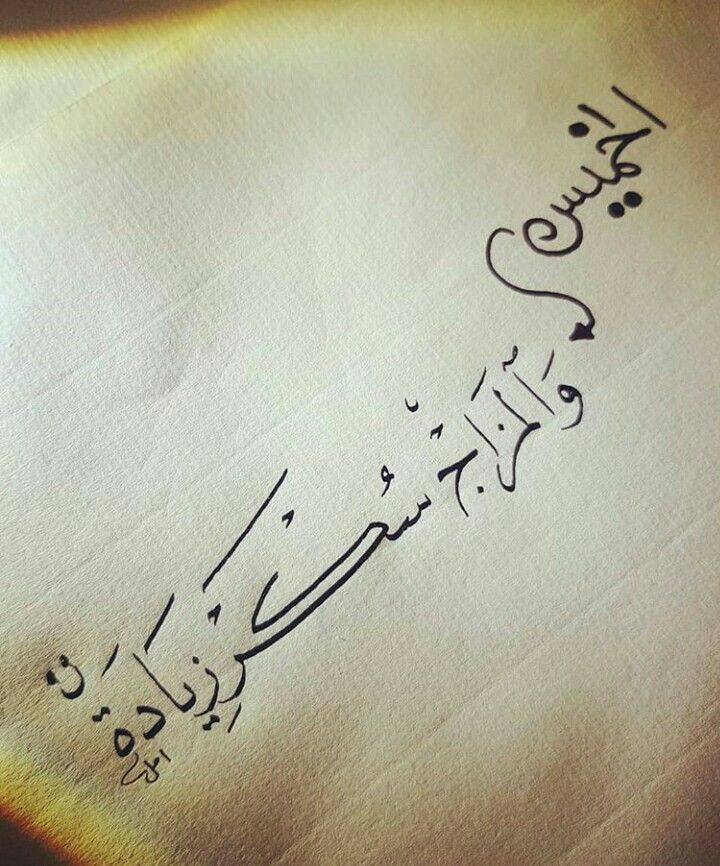 الخميس
وَٱلْمزَاجْ سُكَّرْ زِيَادَة